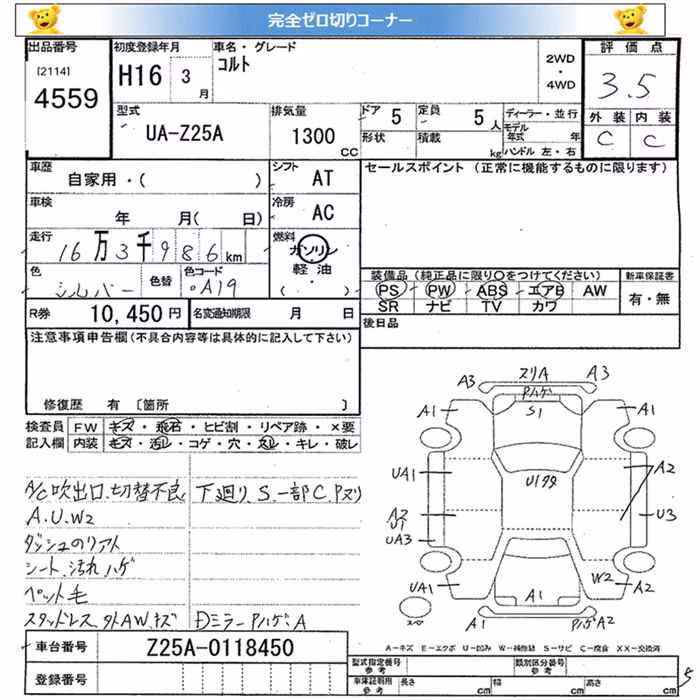 完全ゼロ切りコーナー
出品番号
[2114]
4559
初度登録年月
H16 3 月
車名・グレード
コルト
2WD
・
4WD
評価点
3.5
外装 内装
C C
型式
UA-Z25A
排気量
1300 CC
ドア 5
定員 5 人
形状
積載 kg
ディーラー・並行
モデル年式 年
ハンドル 左・右
車歴
自家用・( )
シフト AT
車検
年 月( 日)
冷房 AC
走行
16万3千986km
燃料
ガソリン
軽油
( )
色
シルバー
色替
色コード
A19
R券 10,450円
名変通知期限 月 日
セールスポイント (正常に機能するものに限ります)
装備品 (純正品に限り○をつけてください)
PS PW ABS エアB AW
SR ナビ TV カワ
新車保証書
有・無
後日品
注意事項申告欄(不具合内容等は具体的に記入して下さい)
修復歴 有 [箇所 ]
検査員記入欄
FW キズ・飛石・ヒビ割・リペア跡・×要
内装 キズ・汚レ・コゲ・穴・スレ・キレ・破レ
A/C吹出口、切替不良
A.U.W2
ダッシュのリアト
シート、汚れハゲ
ペット毛
スタッドレス、外AW、キズ
下廻り、S.一部C.Pヌリ
Dミラー Pハゲ、A
A3 スリA A3
Pハゲ
S1
A1 A1
UA1 U1タタ A2
A2
U1
UA3
U3
UA1 W2 A2
A1
スペ
PハゲA2
A-キズ E-エクボ U-凹み W-補修跡 S-サビ C-腐食 XX-交換済
車台番号 Z25A-0118450
登録番号
型式指定番号
参考
類別区分番号
参考
車庫証明用
参考
長さ cm 幅 cm 高さ cm